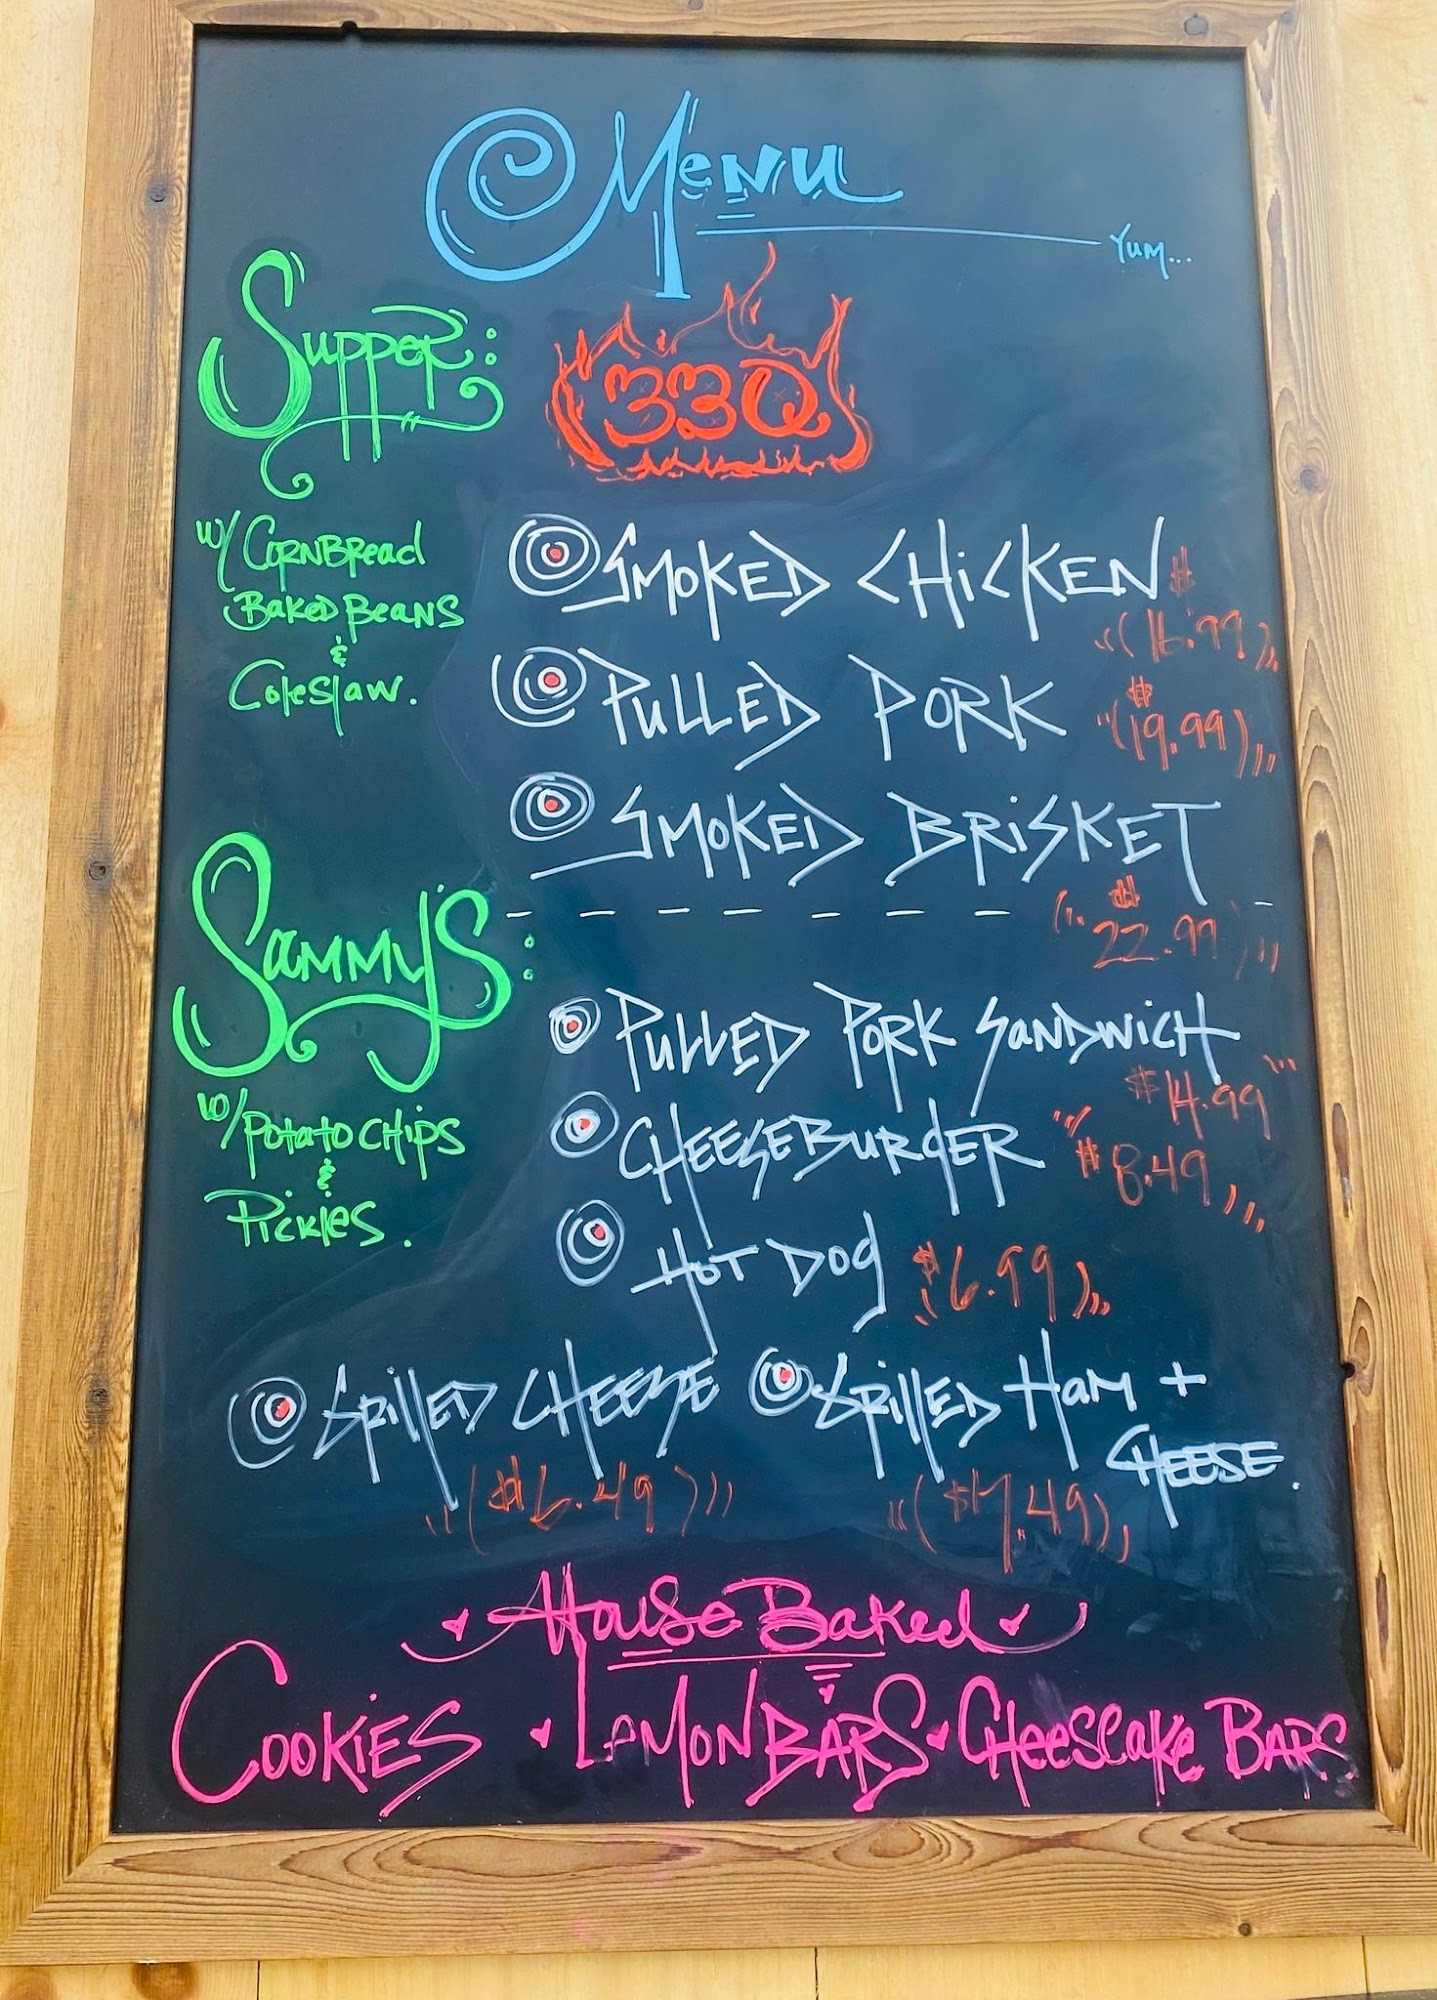 Menu
Yum...
Supper:
BBQ
w/ Cornbread
Baked Beans
&
Coleslaw.
Smoked Chicken $
(16.99)
Pulled Pork $
(19.99)
Smoked Brisket
$
(22.99)
Sammy's:
w/ Potato Chips
&
Pickles.
Pulled Pork Sandwich
$14.99
Cheeseburger $8.49
Hot Dog $6.99
Grilled Cheese
($6.49)
Grilled Ham +
Cheese.
($7.49)
House Baked
Cookies Lemon Bars Cheesecake Bars